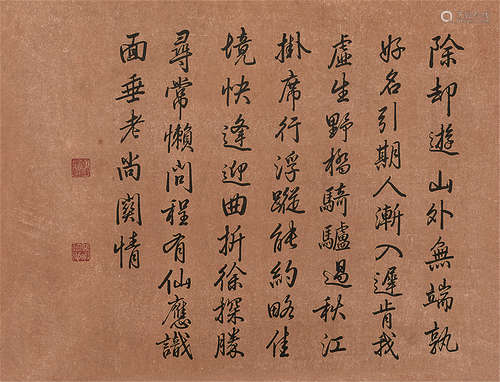 除却遊山外無端孰
好名引期人漸入遲肯我
虛生野橋騎驢過秋江
掛席行浮蹤能約略佳
境快逢迎曲折徐探勝
尋常懶問程有仙應識
面垂老尚関情